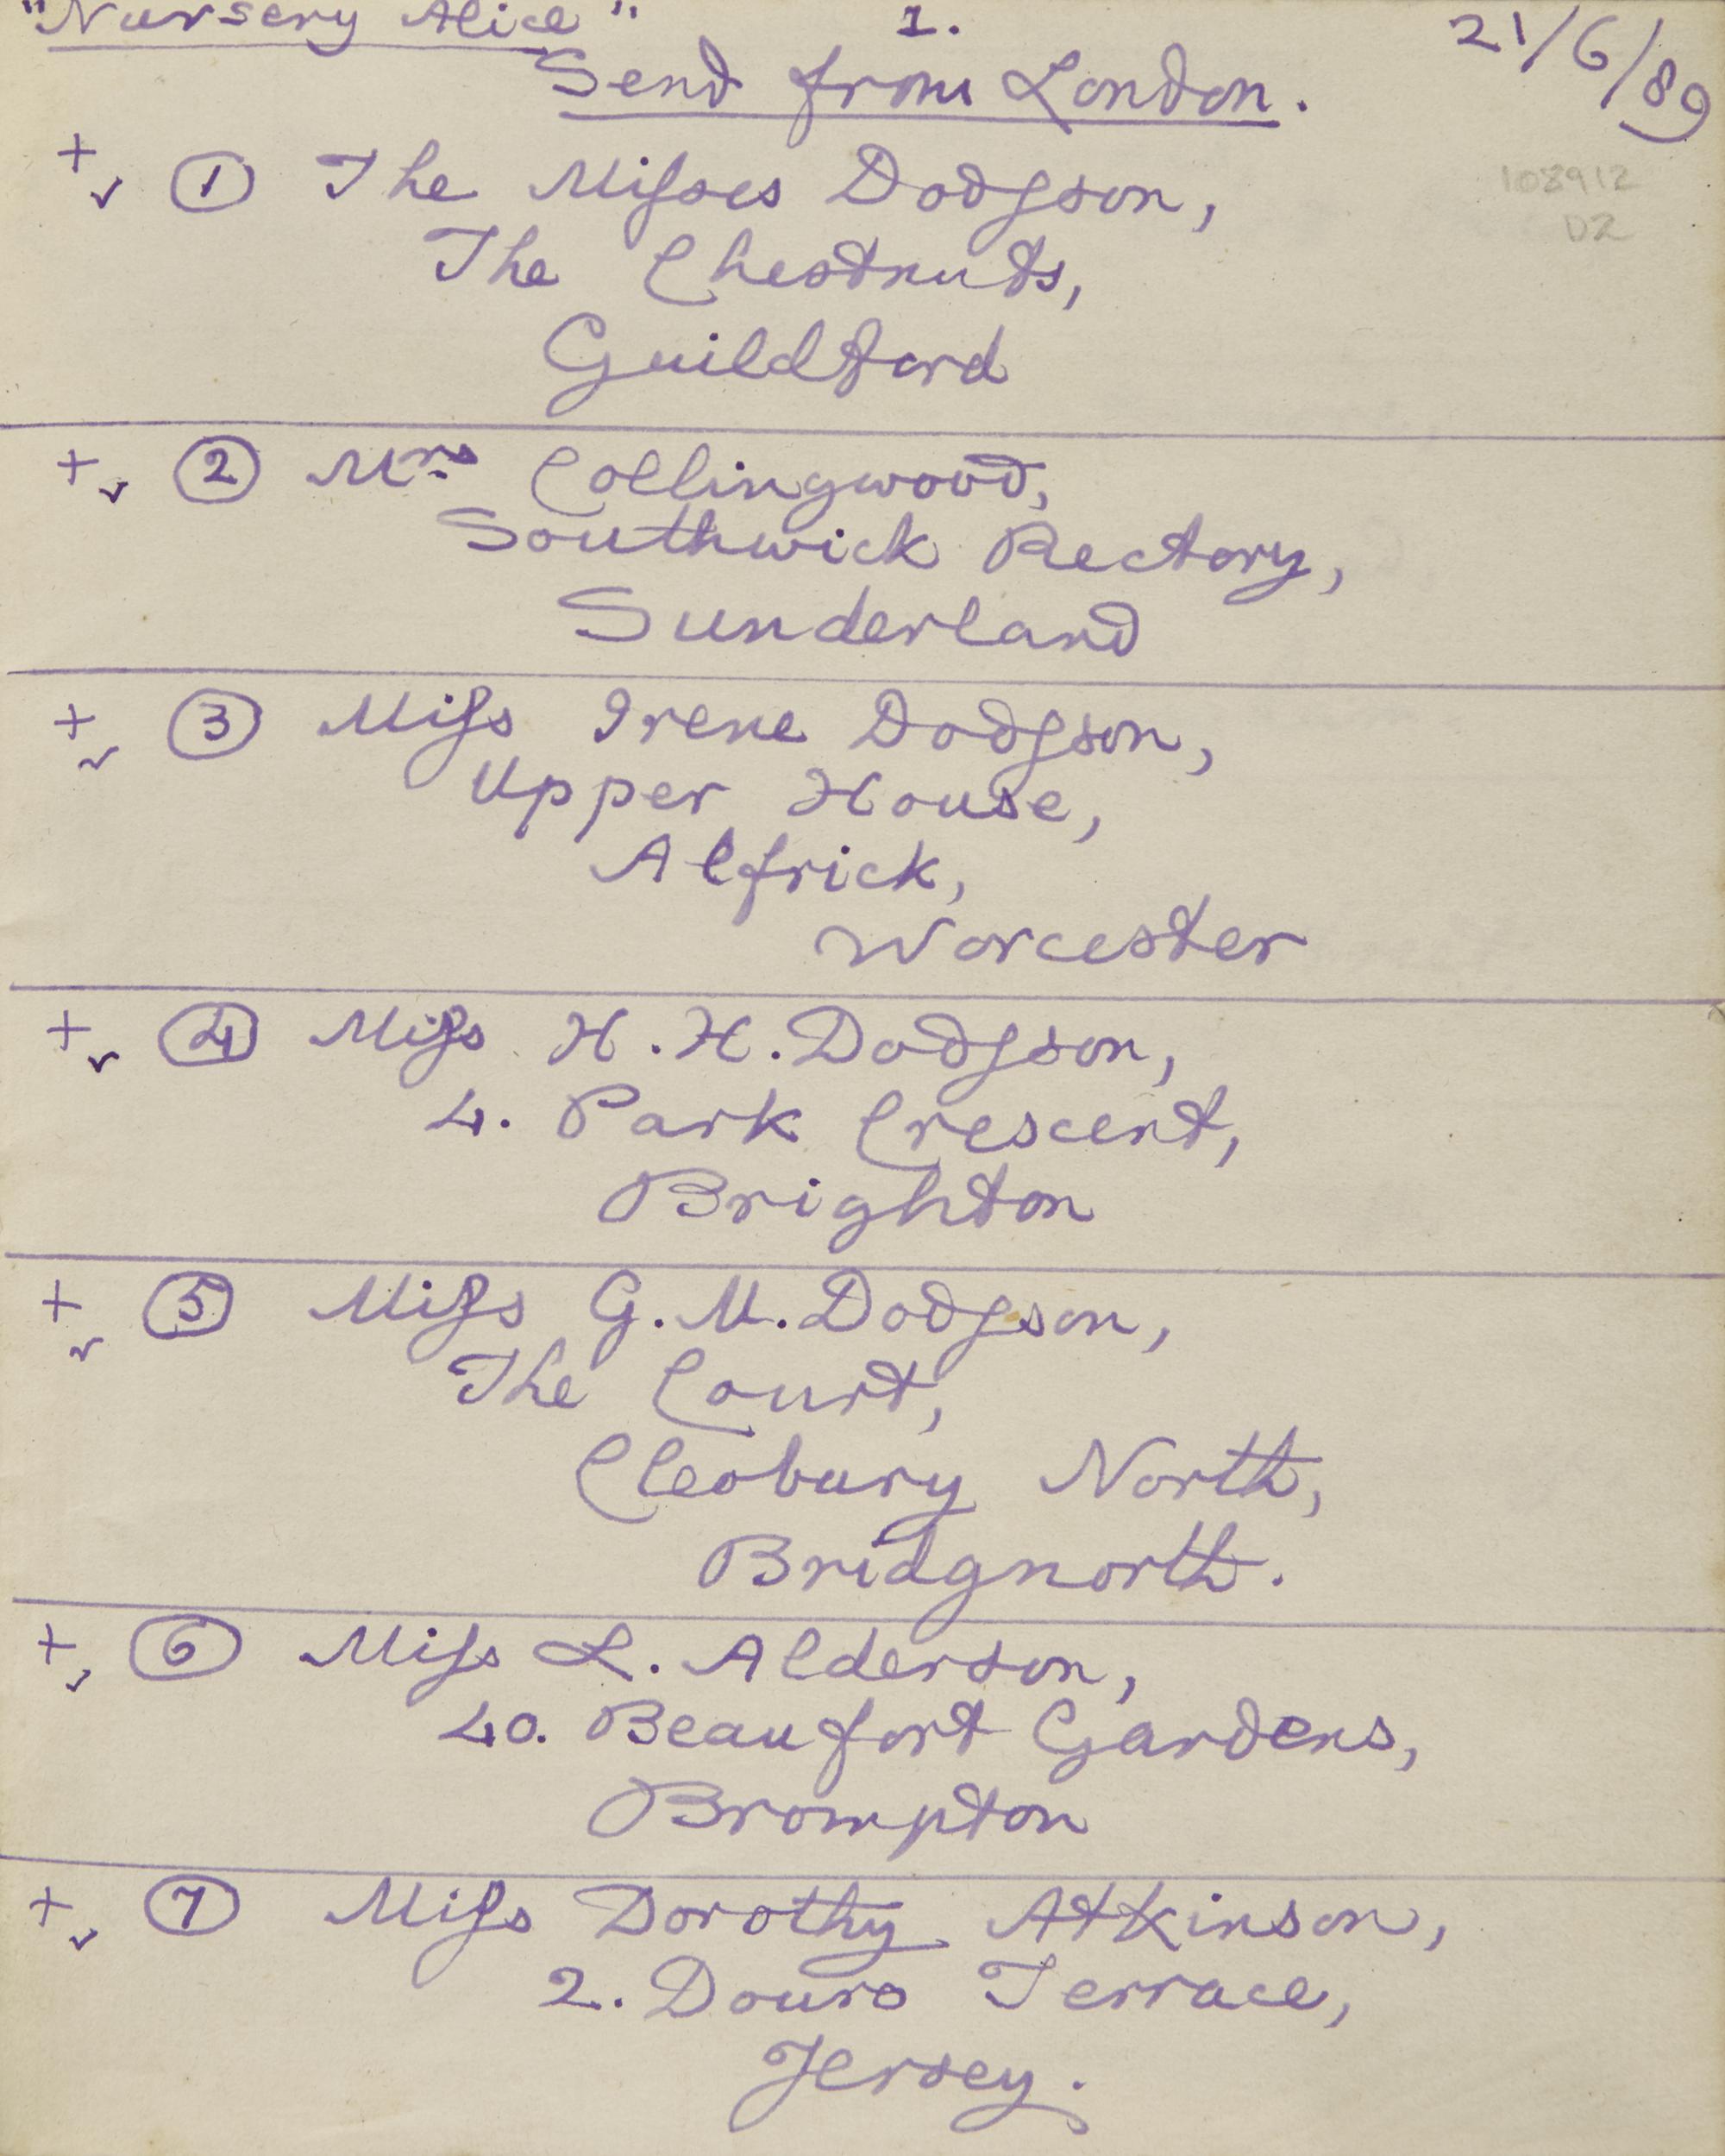 "Nursery Alice" 1. 21/6/89
Send from London.
108912
D2
+ ✓ ① The Miſses Dodgson,
The Chestnuts,
Guildford
+ ✓ ② Mrs. Collingwood,
Southwick Rectory,
Sunderland
+ ✓ ③ Miſs Irene Dodgson,
Upper House,
Alfrick,
Worcester
+ ✓ ④ Miſs H. H. Dodgson,
4. Park Crescent,
Brighton
+ ✓ ⑤ Miſs G. M. Dodgson,
The Court,
Cleobury North,
Bridgnorth.
+ ✓ ⑥ Miſs L. Alderson,
40. Beaufort Gardens,
Brompton
+ ✓ ⑦ Miſs Dorothy Atkinson,
2. Douro Terrace,
Jersey.